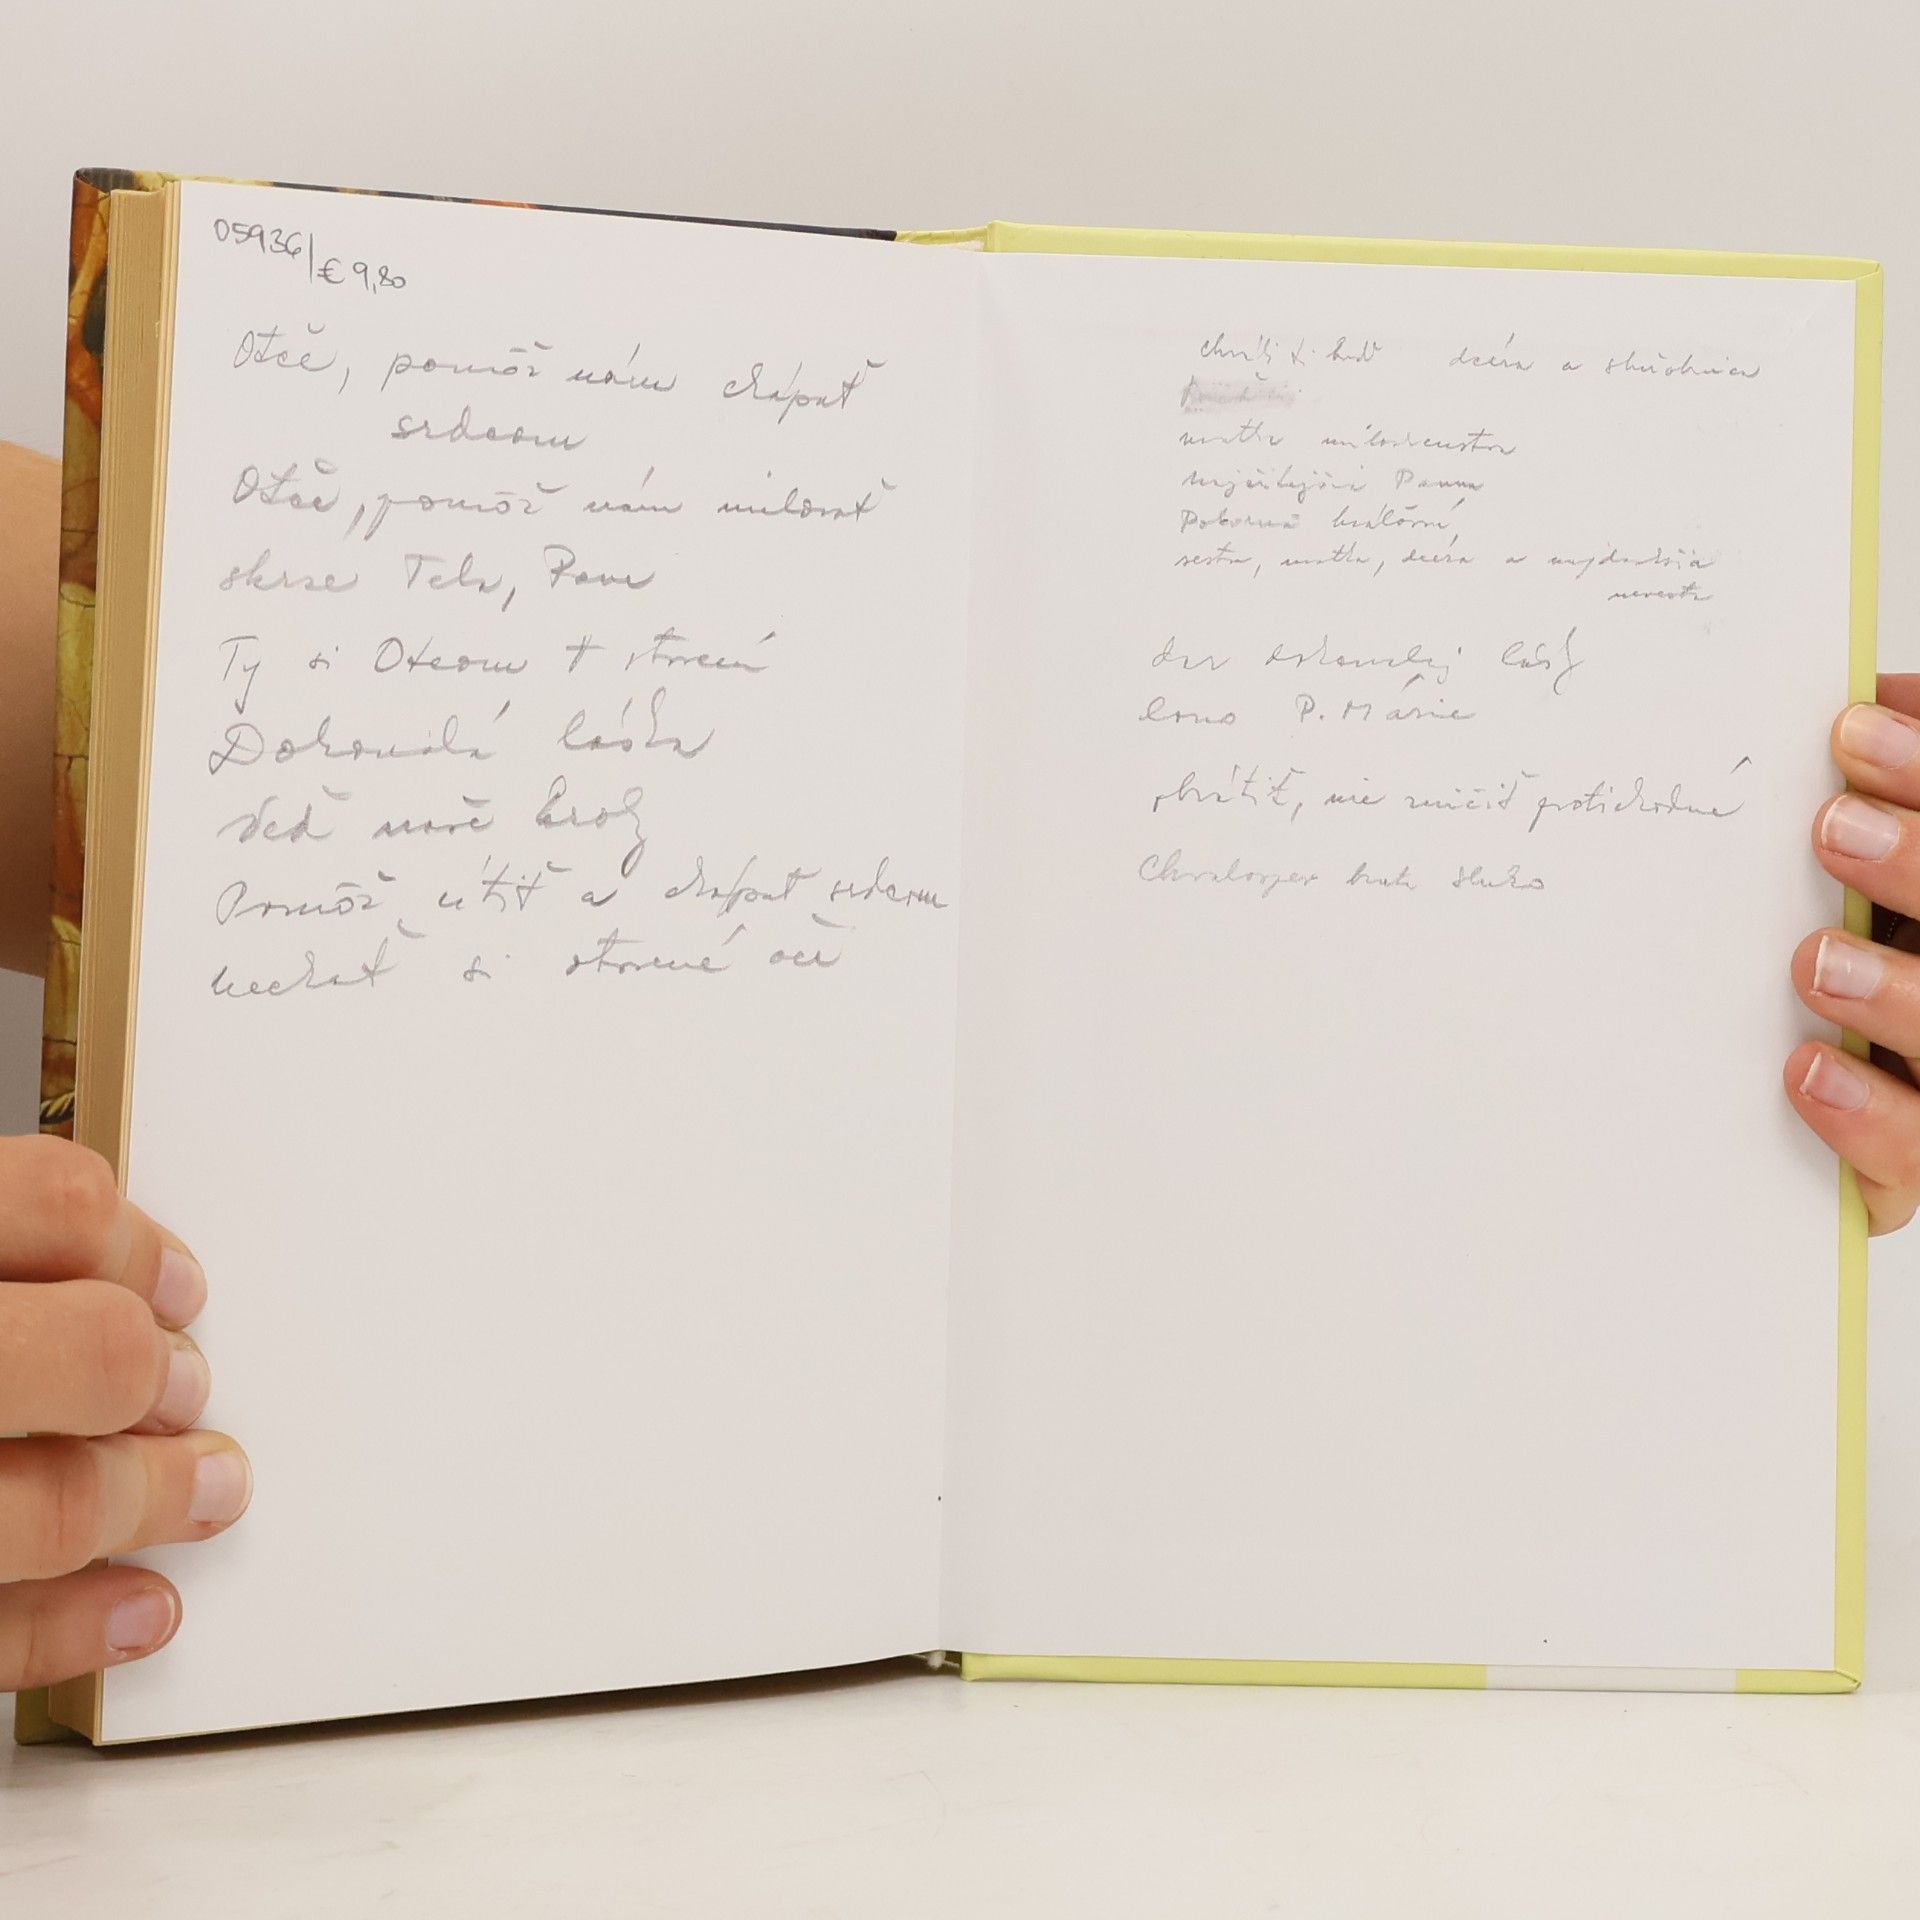 05936/€ 9,80
Otče, pomôž nám chápať
srdcom
Otče, pomôž nám milovať
skrze Tela, Pane
Ty si Otcom + stvorení
Dokonalá láska
Veď naše kroky
Pomôž cítiť a chápať srdcom
nechať si otvorené oči
dcéra a služobnica
matka milosrdenstva
najčistejšia Panna
Pokorná kráľovná,
sestra, matka, dcéra a najdrahšia
nevesta
dar dokonalej lásky
lono P. Márie
obrátiť, nie zničiť protichodné